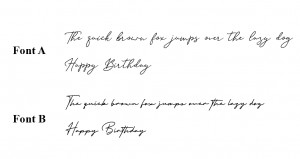 The quick brown fox jumps over the lazy dog
Font A
Happy Birthday
The quick brown fox jumps over the lazy dog
Font B
Happy Birthday